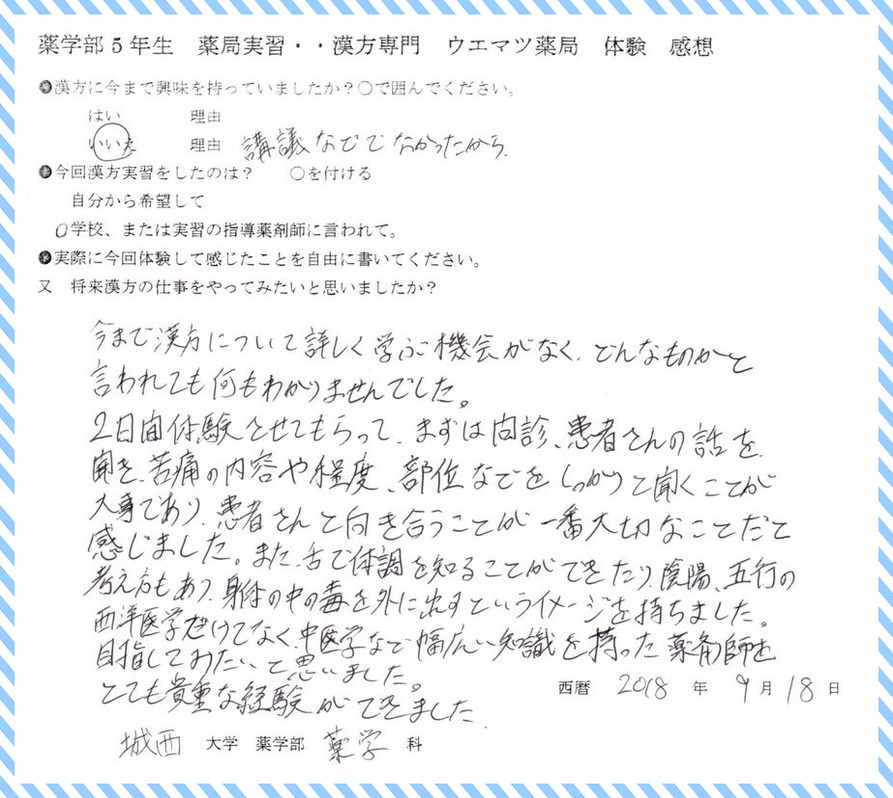 薬学部5年生　薬局実習・・漢方専門　ウエマツ薬局　体験　感想
●漢方に今まで興味を持っていましたか?○で囲んでください。
はい　理由
いいえ　理由　講議などでなかったから。
●今回漢方実習をしたのは?　○を付ける
自分から希望して
○学校、または実習の指導薬剤師に言われて。
●実際に今回体験して感じたことを自由に書いてください。
又　将来漢方の仕事をやってみたいと思いましたか?
今まで漢方について詳しく学ぶ機会がなく、どんなものかと
言われても何もわかりませんでした。
2日間体験させてもらって、まずは問診、患者さんの話を
聞き、苦痛の内容や程度、部位などをしっかりと聞くことが
大事であり、患者さんと向き合うことが一番大切なことだと
感じました。また、舌で体調を知ることができたり、陰陽、五行の
考え方もあり、身体の中の毒を外に出すというイメージを持ちました。
西洋医学だけでなく、中医学など幅広い知識を持った薬剤師を
目指してみたいと思いました。
とても貴重な経験ができました。
西暦　2018　年　9月18日
城西　大学　薬学部　薬学　科